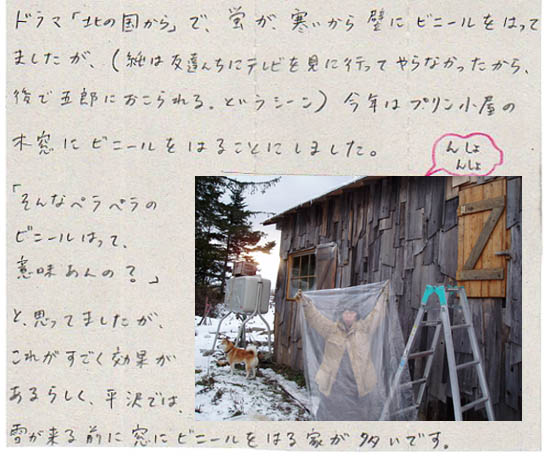 ドラマ「北の国から」で、蛍が、寒いから壁にビニールをはって
ましたが、(純は友達んちにテレビを見に行ってやらなかったから、
後で五郎におこられる。というシーン)今年はプリン小屋の
木窓にビニールをはることにしました。
んしょ
んしょ
「そんなペラペラの
ビニールはって、
意味あんの?」
と、思ってましたが、
これがすごく効果が
あるらしく、平沢では、
雪が来る前に窓にビニールをはる家が多いです。